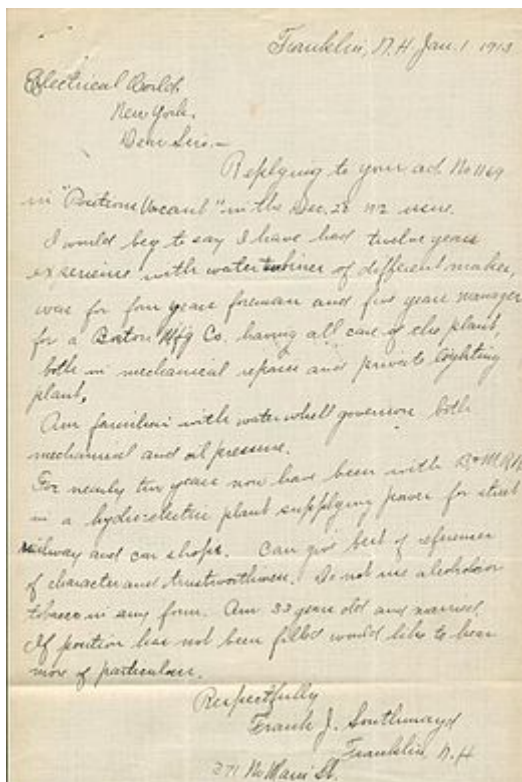 Franklin, N.H. Jan. 1 1913
Electrical World
New York.
Dear Sirs.—
Replying to your ad. No 1169
in "Positions Vacant" in the Dec. 28 '12 issue.
I would beg to say I have had twelve years
experience with water turbines of different makes,
was for four years foreman and five years manager
for a Boston Mfg Co. having all care of the plant,
both in mechanical repairs and private lighting
plant.
Am familiar with waterwheel governors both
mechanical and oil pressure.
For nearly two years now have been with B.+M.R.R.
in a hydro-electric plant supplying power for street
railway and car shops. Can give best of references
of character and trustworthiness. Do not use alcohol or
tobacco in any form. Am 33 years old and married.
If position has not been filled would like to hear
more of particulars.
Respectfully
Frank J. Southmayd
Franklin, N.H
371 No Main St.